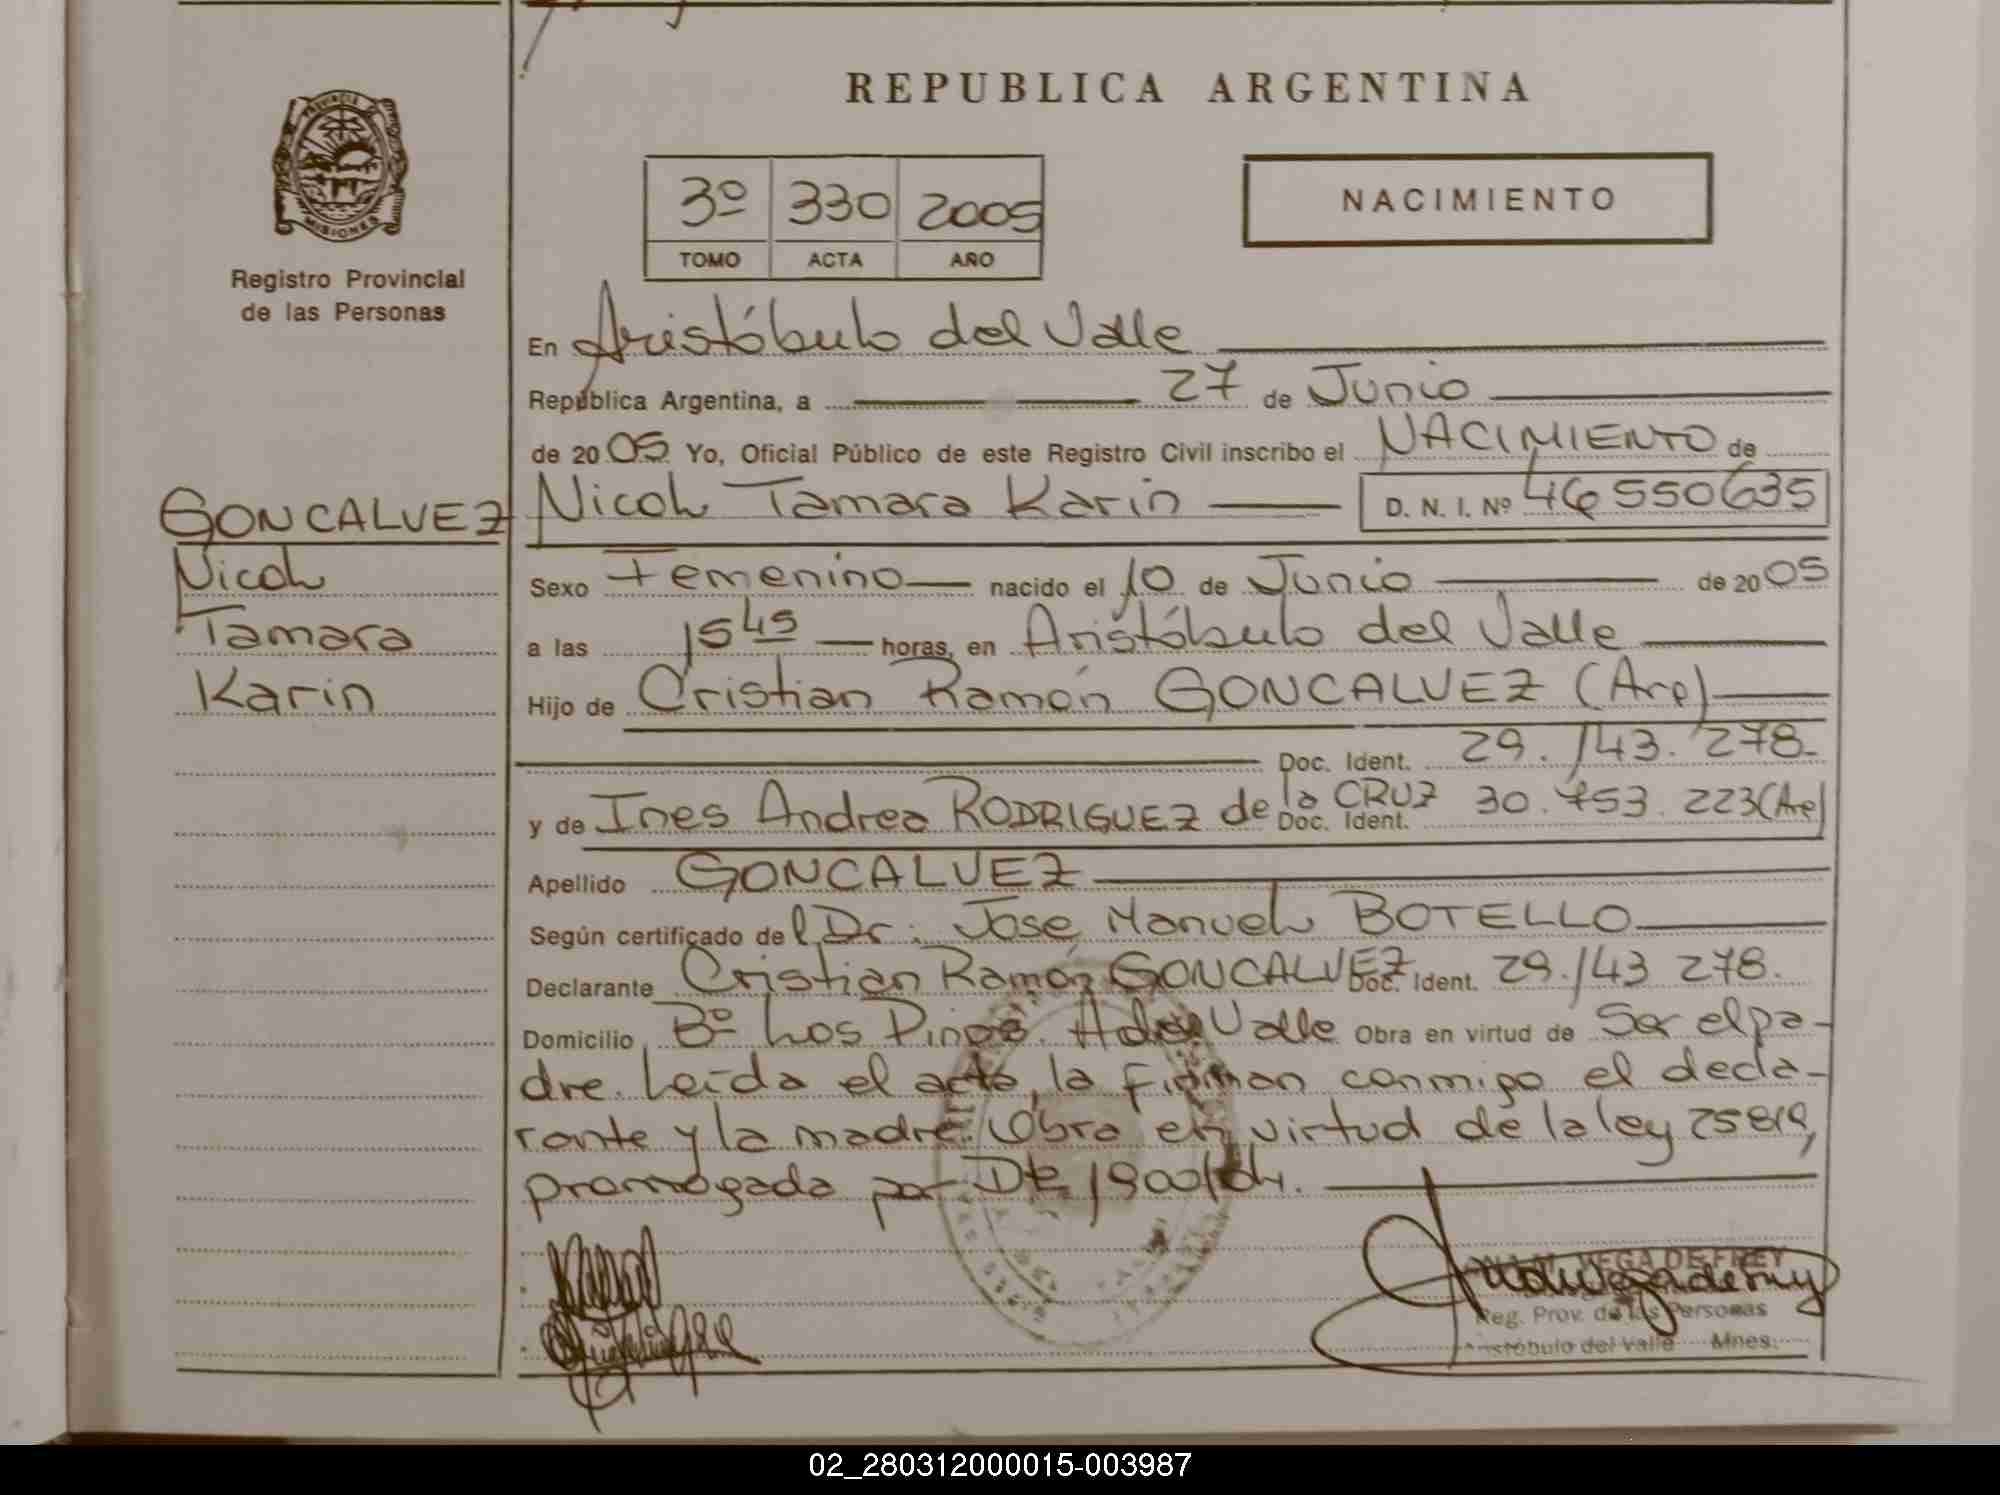 REPUBLICA ARGENTINA
PROVINCIA DE MISIONES
Registro Provincial
de las Personas
3º 330 2005
TOMO ACTA AÑO
NACIMIENTO
En Aristóbulo del Valle
República Argentina, a 27 de Junio
de 2005 Yo, Oficial Público de este Registro Civil inscribo el NACIMIENTO de
GONCALVEZ
Nicol
Tamara
Karin
Nicol Tamara Karin D. N. I. Nº 46 550635
Sexo Femenino nacido el 10 de Junio de 2005
a las 15 45 horas, en Aristóbulo del Valle
Hijo de Cristian Ramón GONCALVEZ (Arg)
Doc. Ident. 29.143.278
y de Ines Andrea RODRIGUEZ de la CRUZ Doc. Ident. 30.753.223 (Arg)
Apellido GONCALVEZ
Según certificado del Dr. Jose Manuel BOTELLO
Declarante Cristian Ramón GONCALVEZ Doc. Ident. 29.143 278.
Domicilio Bº Los Pinos. A del Valle Obra en virtud de Ser el pa-
dre. Leída el acta, la firman conmigo el decla-
rante y la madre. Obra en virtud de la ley 25819,
prorrogada por Dto 1900/04.
VEGA DE FREY
Reg. Prov. de las Personas
Aristóbulo del Valle Mnes.
02_280312000015-003987